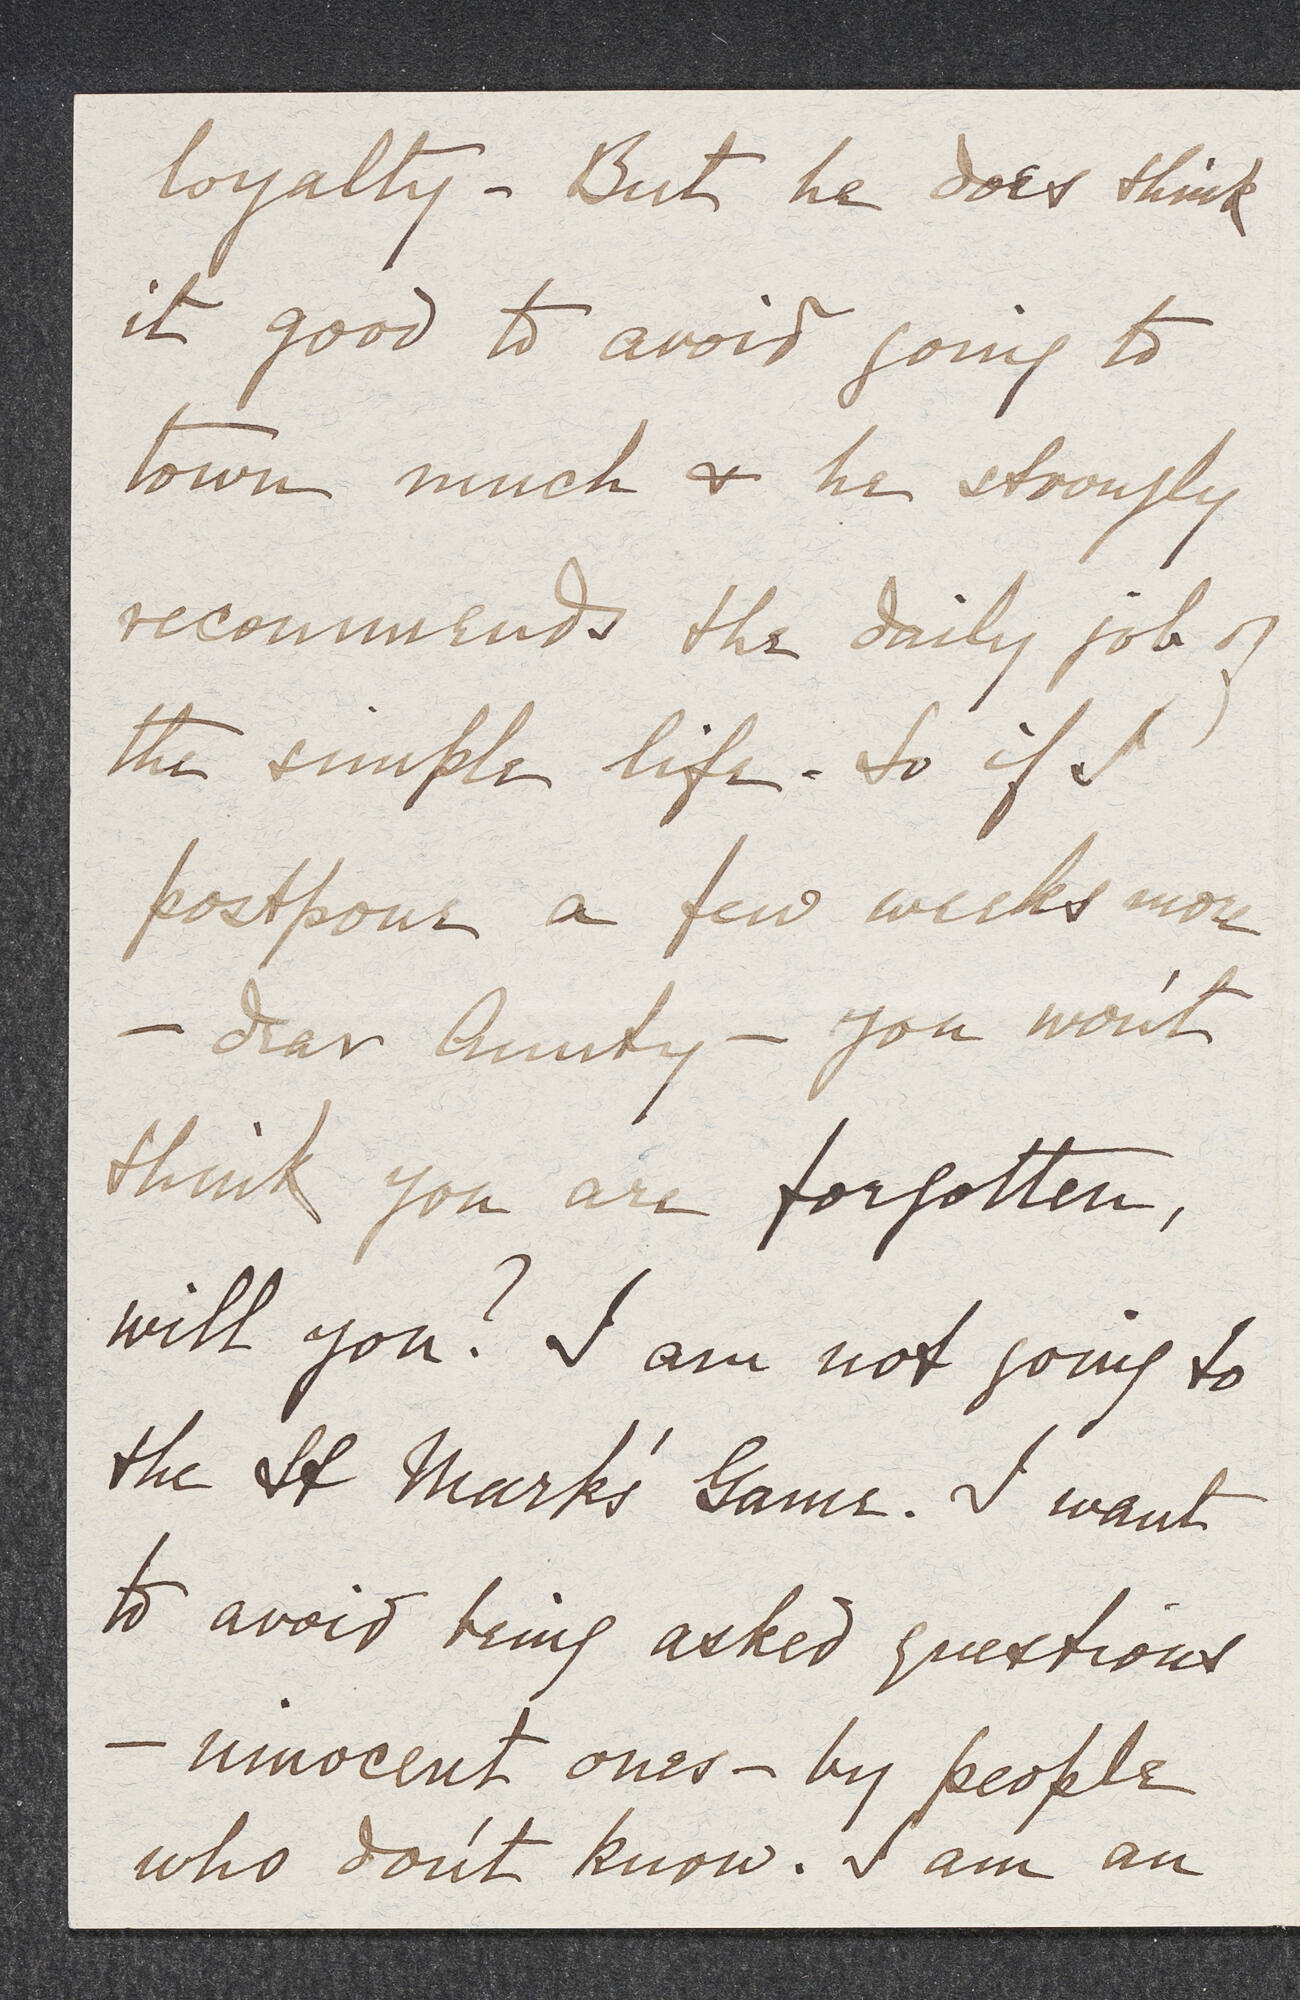 loyalty - But he does think
it good to avoid going to
town much & he strongly
recommends the daily job of
the simple life. So if I
postpone a few weeks more
- dear Aunty - you won't
think you are forgotten,
will you? I am not going to
the St Mark's Game. I want
to avoid being asked questions
- innocent ones - by people
who don't know. I am an